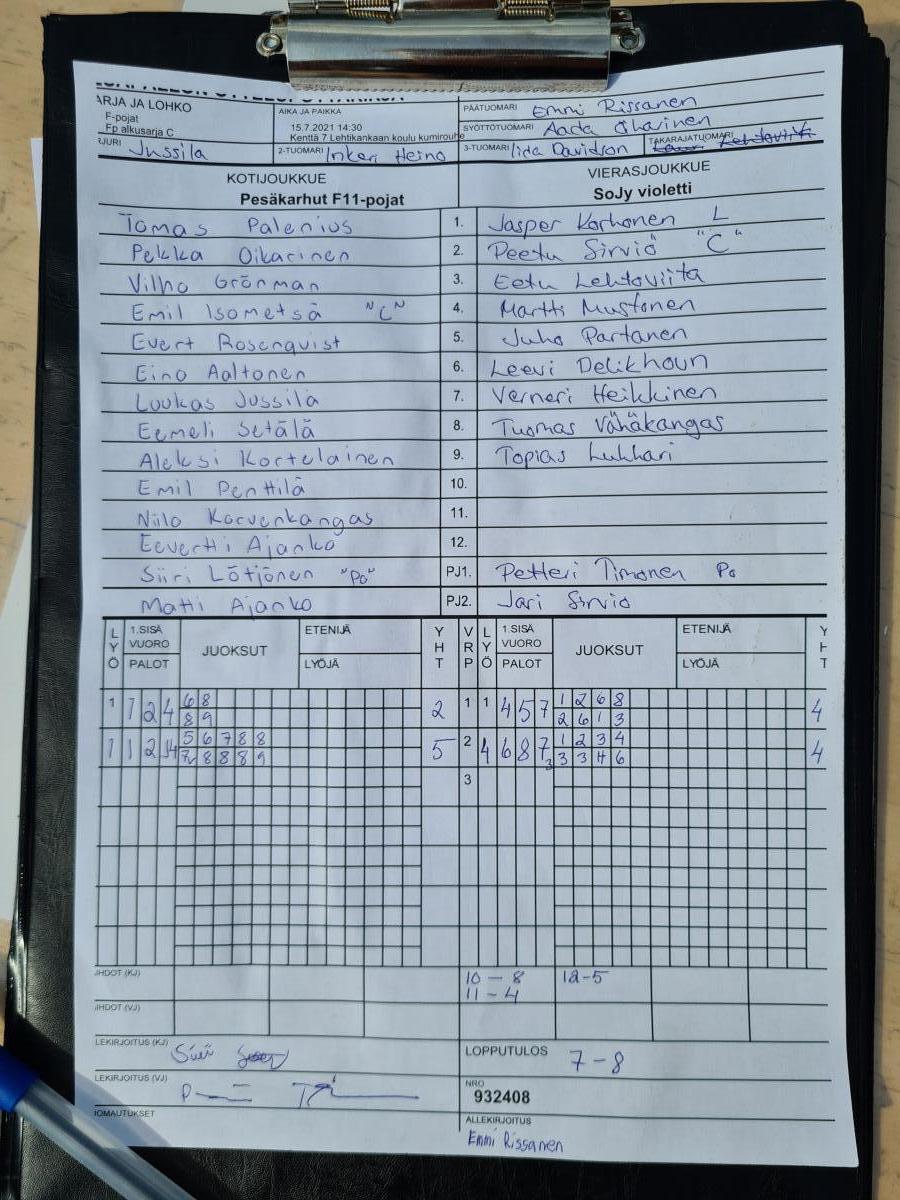 ARJA JA LOHKO
F-pojat
Fp alkusarja C
AIKA JA PAIKKA
15.7.2021 14:30
Kenttä 7 Lehtikankaan koulu kumirouhe
PÄÄTUOMARI Emmi Rissanen
SYÖTTÖTUOMARI Aada
JURI Jussila
2-TUOMARI Inkeri Heino
3-TUOMARI Iida Davidson
TAKARAJATUOMARI
KOTIJOUKKUE
Pesäkarhut F11-pojat
VIERASJOUKKUE
SoJy violetti
Tomas Palenius 1. Jasper Korhonen L
Pekka Oikarinen 2. Peetu Sirviö "C"
Vilho Grönman 3. Eetu Lehtoviita
Emil Isometsä "C" 4. Martti Mustonen
Evert Rosenqvist 5. Juho Partanen
Eino Aaltonen 6. Leevi Delikhoun
Luukas Jussila 7. Verneri Heikkinen
Eemeli Setälä 8. Tuomas Vähäkangas
Aleksi Kortelainen 9. Topias Lukkari
Emil Penttilä 10.
Niilo Korvenkangas 11.
Eevertti Ajanko 12.
Siiri Lötjönen "Po" PJ1. Petteri Timonen Po
Matti Ajanko PJ2. Jari Sirviö
LYÖ 1.SISÄ VUORO PALOT JUOKSUT ETENIJÄ LYÖJÄ YHT VRP LYÖ 1.SISÄ VUORO PALOT JUOKSUT ETENIJÄ LYÖJÄ YHT
1 1 2 4 6 8 2 1 1 4 5 7 1 2 6 8 4
8 9 2 6 1 3
1 1 2 5 6 7 8 8 5 2 4 6 8 7 1 2 3 4 4
7 8 8 8 9 3 3 3 4 6
3
IHDOT (KJ) 10 – 8 12-5
11 – 4
IHDOT (VJ)
LEKIRJOITUS (KJ) Siiri
LOPPUTULOS 7 – 8
LEKIRJOITUS (VJ)
NRO
932408
IOMAUTUKSET
ALLEKIRJOITUS
Emmi Rissanen